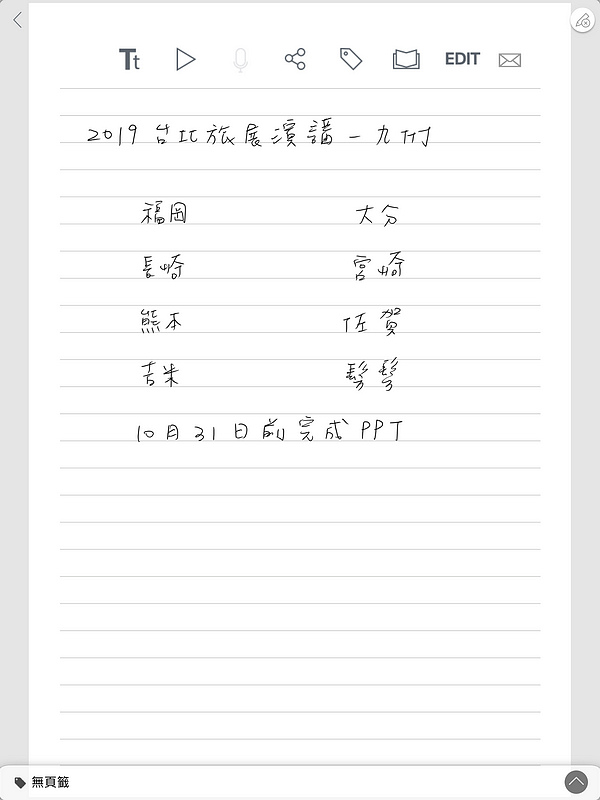 Tt EDIT
2019 台北旅展演講一九州
福岡 大分
長崎 宮崎
熊本 佐賀
吉米
10月31日前完成PPT
無頁籤